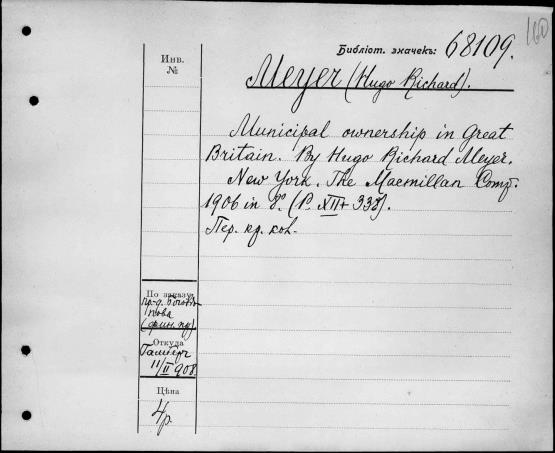 160
Библіот. значекъ: 68109.
Инв.
№
Meyer (Hugo Richard).
Municipal ownership in Great
Britain. By Hugo Richard Meyer.
New York. The Macmillan Comp.
1906 in 8º. (P. XII + 338).
Пер. кр. кол.
По заказу
(фин. пр.)
Откуда
11/II 908.
Цѣна
4 р.